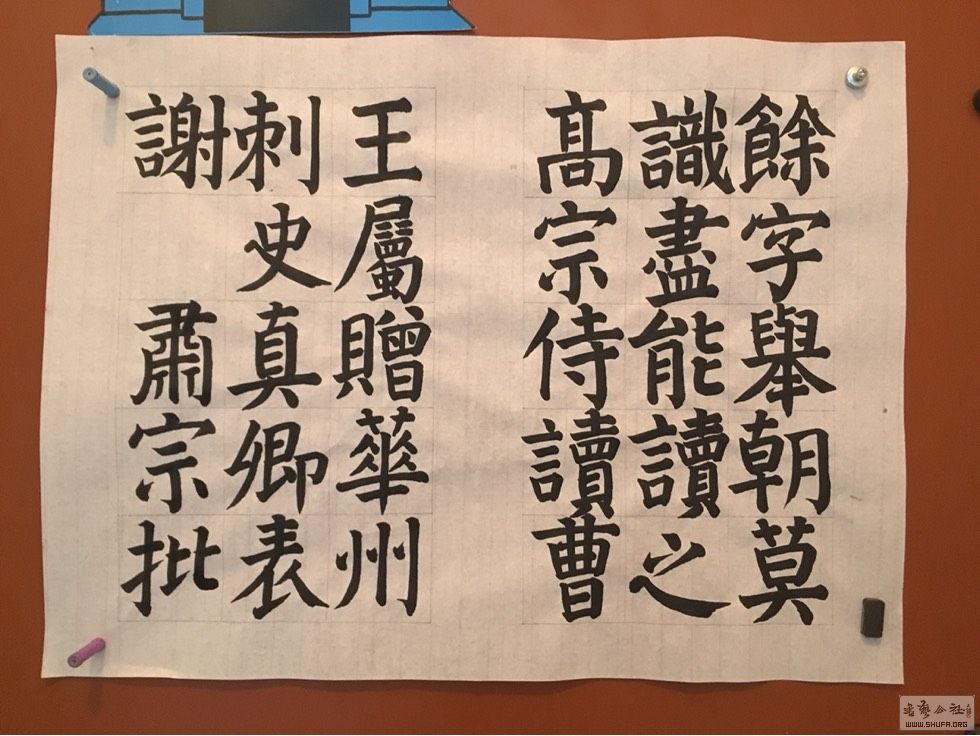 餘字舉朝莫
識盡能讀之
髙宗侍讀曹
王屬贈華州
刺史真卿表
謝 肅宗批
書藝公社
WWW.SHUFA.ORG